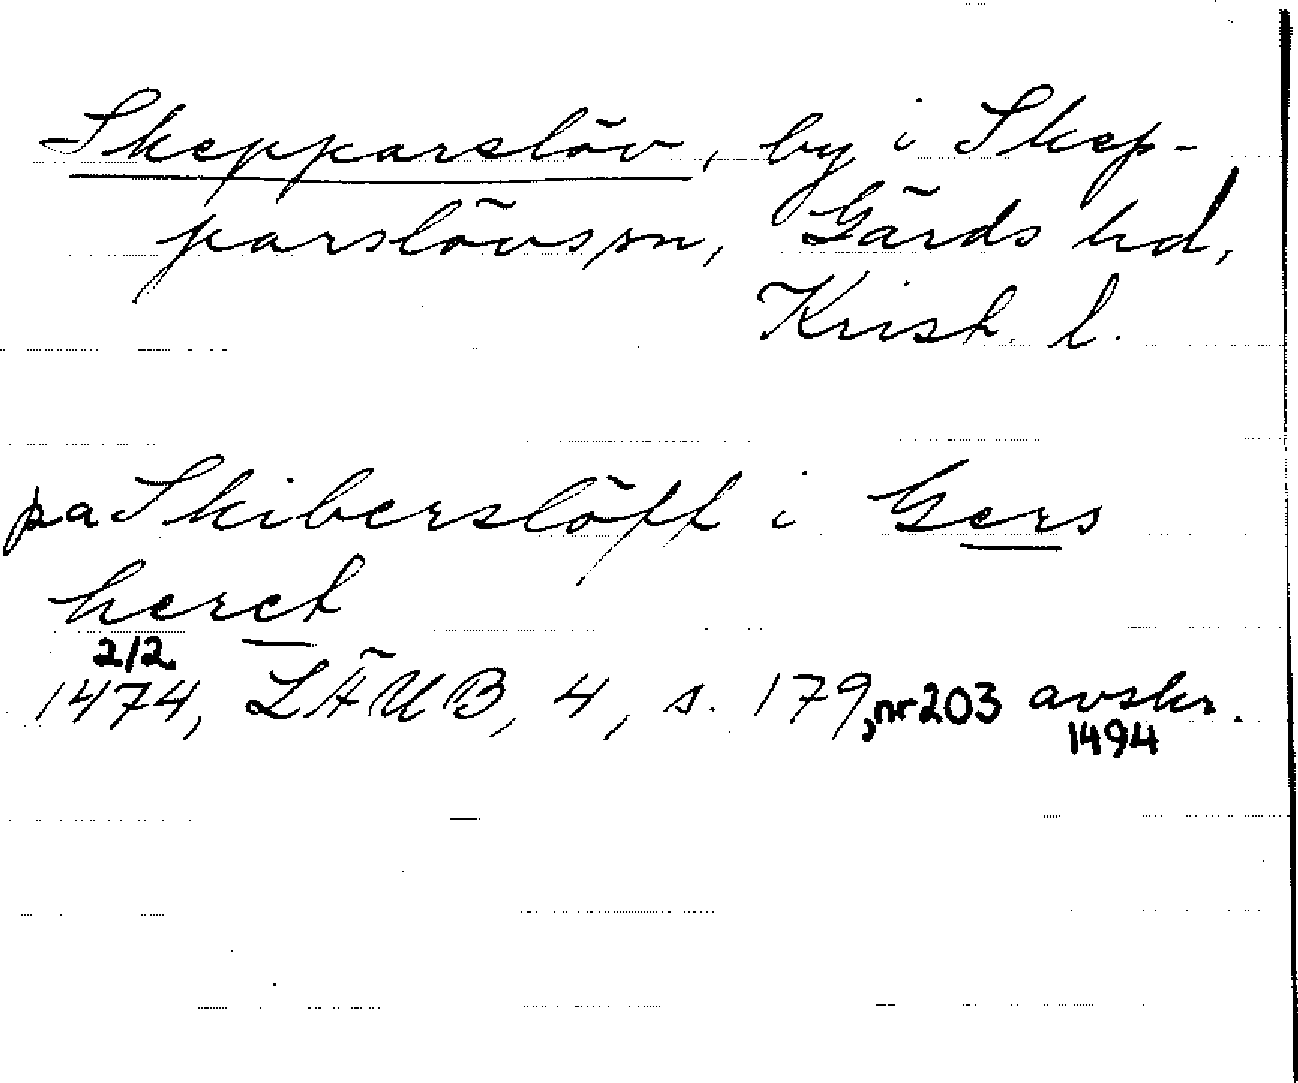 Skepparslöv, by i Skep-
parslövs sn, Gärds hd,
Krist. l.
pa Skiberslöff i Gers
heret
2/2
1474, LÄUB, 4, s. 179, nr 203 avskr.
1494